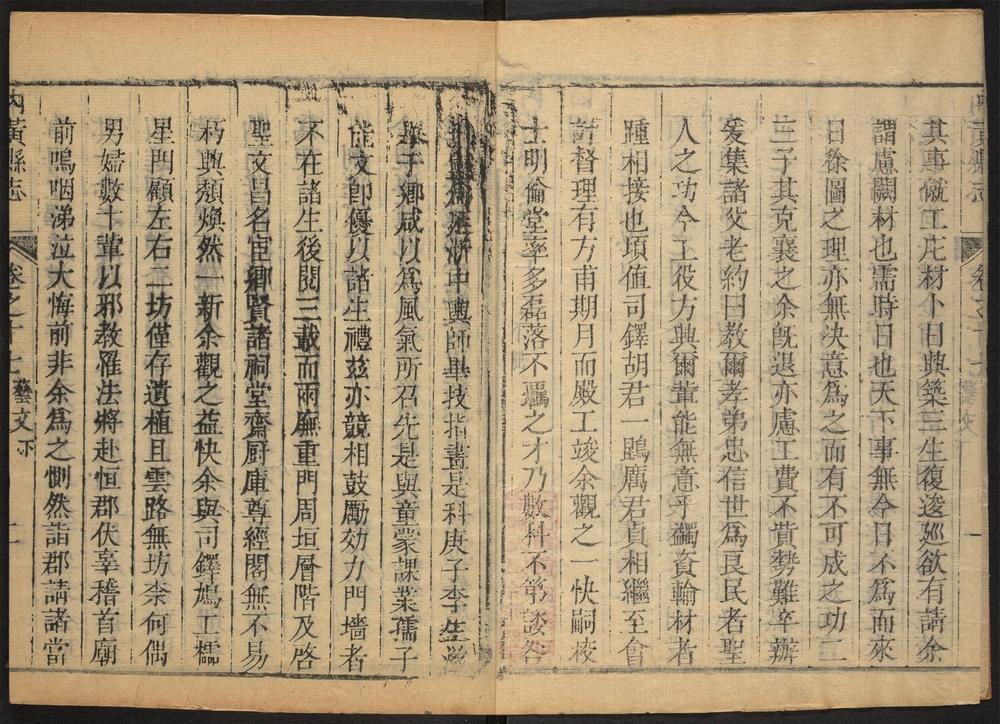 其事僦工庀材卜日興築三生復逡廵欲有請余
謂慮闕材也需時日也天下事無今日不為而來
日徐圖之理亦無決意為之而有不可成之功二
三子其克襄之余旣退亦慮工費不貲勢難卒辦
爰集諸父老約曰教爾孝弟忠信世為良民者聖
人之功今工役方興爾輩能無意乎襴資輸材者
踵相接也項值司鐸胡君一鶚厲君貞相繼至會
計督理有方甫期月而殿工竣余觀之一快嗣校
士明倫堂率多磊落不羈之才乃數科不第諉咎
中輿師畢技指畫是科庚子李生
子鄉咸以為風氣所召先是與童蒙課業孺子
能文卽優以諸生禮玆亦競相鼓勵効力門墻者
不在諸生後閱三載而兩廡重門周垣層階及啓
聖文昌名宦鄉賢諸祠堂齋厨庫尊經閣無不易
朽興頽煥然一新余觀之益快余與司鐸鳩工櫺
星門顧左右二坊僅存遺植且雲路無坊柰何偶
男婦數十輩以邪教罹法將赴恒郡伏辜稽首廟
前嗚咽涕泣大悔前非余為之惻然詣郡請諸當
內黃縣志
卷之十七
藝文下
二
黃縣志
卷之十七
藝文
一